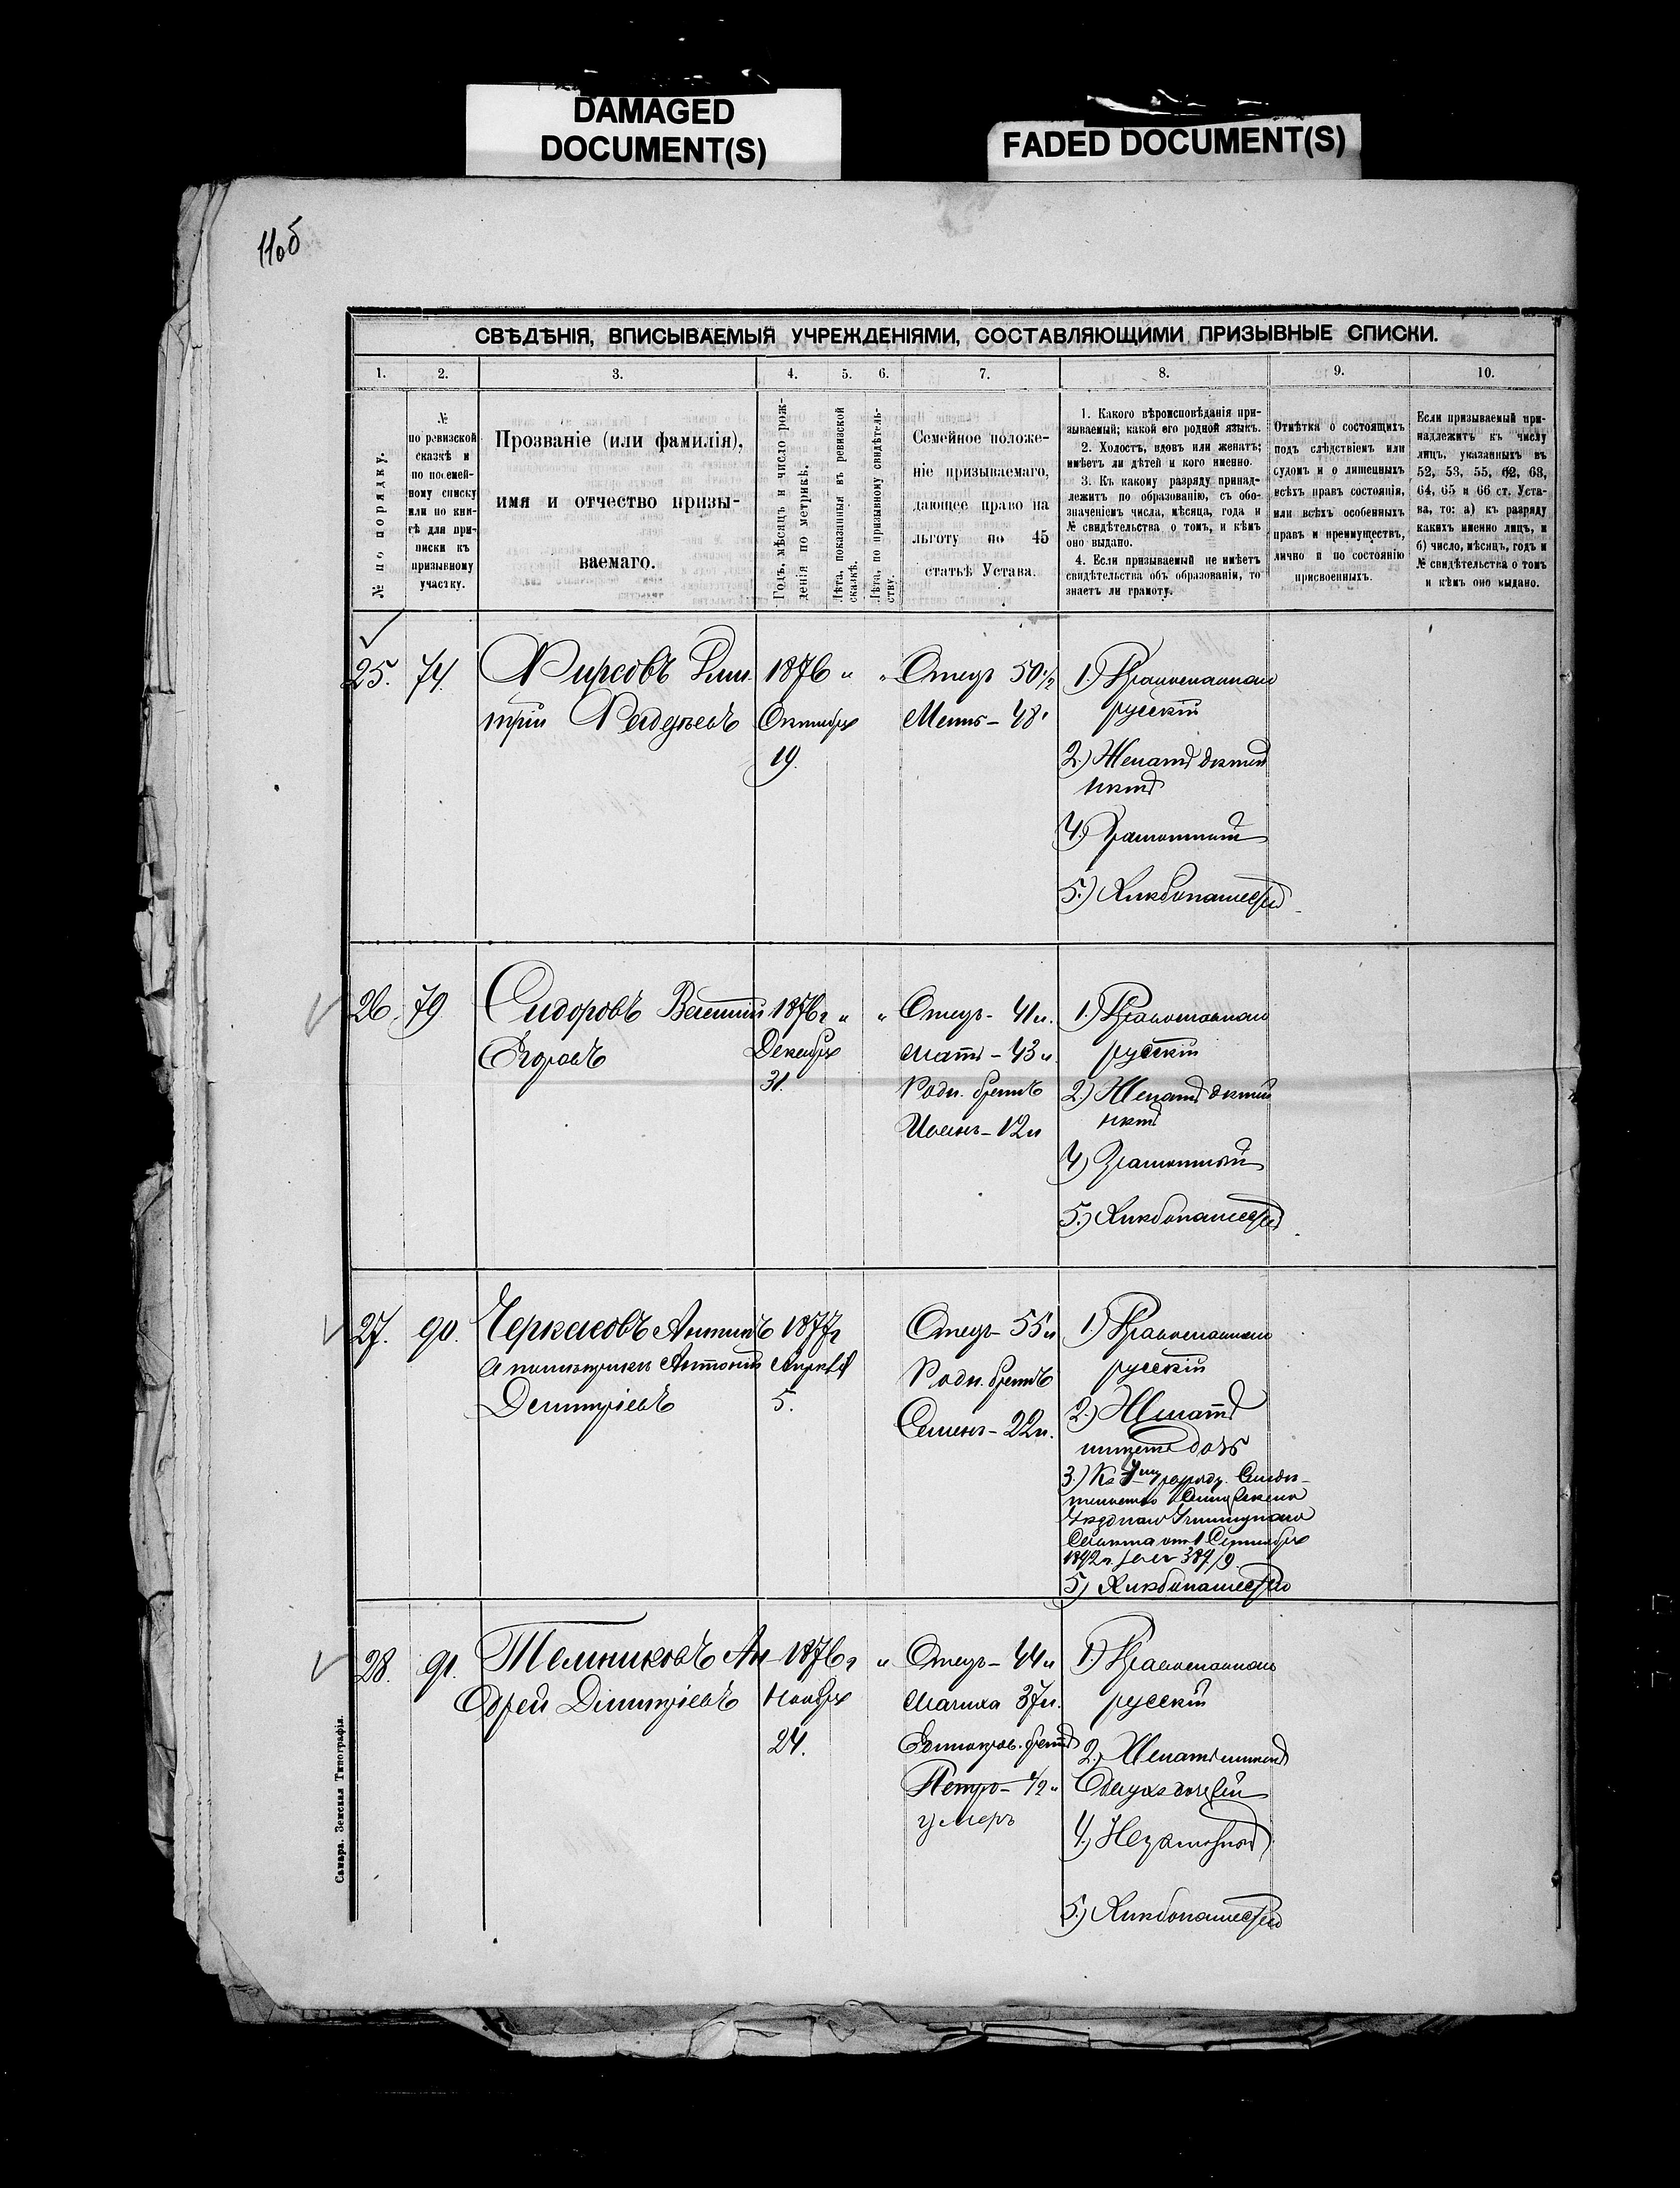 DAMAGED
DOCUMENT(S)
FADED DOCUMENT(S)
11об
СВѢДѢНІЯ, ВПИСЫВАЕМЫЯ УЧРЕЖДЕНІЯМИ, СОСТАВЛЯЮЩИМИ ПРИЗЫВНЫЕ СПИСКИ.
1. 2. 3. 4. 5. 6. 7. 8. 9. 10.
№ по порядку.
№
по ревизской
сказкѣ и
по посемей-
ному списку
или по кни-
гѣ для при-
писки къ
призывному
участку.
Прозваніе (или фамилія),
имя и отчество призы-
ваемаго.
Годъ, мѣсяцъ и число рож-
денія по метрикѣ.
Лѣта, показанныя въ ревизской
сказкѣ.
Лѣта, по призывному свидѣтель-
ству.
Семейное положе-
ніе призываемаго,
дающее право на
льготу по 45
статьѣ Устава.
1. Какого вѣроисповѣданія при-
зываемый; какой его родной языкъ.
2. Холостъ, вдовъ или женатъ;
имѣетъ ли дѣтей и кого именно.
3. Къ какому разряду принад-
лежитъ по образованію, съ обо-
значеніемъ числа, мѣсяца, года и
№ свидѣтельства о томъ, и кѣмъ
оно выдано.
4. Если призываемый не имѣетъ
свидѣтельства объ образованіи, то
знаетъ ли грамоту.
Отмѣтка о состоящихъ
подъ слѣдствіемъ или
судомъ и о лишенныхъ
всѣхъ правъ состоянія,
или всѣхъ особенныхъ
правъ и преимуществъ,
лично и по состоянію
присвоенныхъ.
Если призываемый при-
надлежитъ къ числу
лицъ, указанныхъ въ
52, 53, 55, 62, 63,
64, 65 и 66 ст. Уста-
ва, то: а) къ разряду
какихъ именно лицъ, и
б) число, мѣсяцъ, годъ и
№ свидѣтельства о томъ
и кѣмъ оно выдано.
25. 74.
Фирсовъ Дми-
трій
1876 "
Октября
19.
" Отецъ 50 1/2
Мать - 48
1.) Православнаго
русскій
2.) Женатъ дѣтей
нѣтъ
4.) Грамотный
5.) Хлѣбопашество
26. 79
Сидоровъ
Егоровъ
1876 г "
Декабря
31.
" Отецъ - 41 л.
Мать - 43 л
Родн. братъ
Иванъ - 12 л
1.) Православнаго
русскій
2.) Женатъ дѣтей
нѣтъ
4) Грамотный
5.) Хлѣбопашество
27. 90.
Черкасовъ Антипъ
а по метрикѣ Антоній
Дмитріевъ
1877 г
Апрѣля
5.
Отецъ - 55 л
Родн. братъ
Семенъ - 22 л.
1) Православнаго
русскій
2.) Женатъ
имѣетъ дочь
3.) Къ разряду. Свидѣ-
тельство
Уѣзднаго Училищнаго
Совѣта отъ 1 Сентября
1892 г. за № 387/9.
5) Хлѣбопашество
28. 91.
Темниковъ Ан-
дрей Дмитріевъ
1876 г "
Ноября
24.
Отецъ - 44 л
Мачиха 37 л.
Единокров. братъ
Петръ - 1/2 л
умеръ
1.) Православнаго
русскій
2.) Женатъ имѣетъ
двухъ дочерей
4.) Неграмотный
5.) Хлѣбопашество
Самара. Земская Типографія.